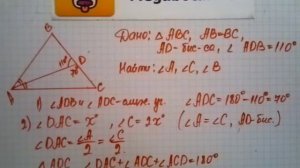 B
110°
70°
D
A
C
Дано: △ABC, AB=BC,
AD-бис-са, ∠ADB=110°
Найти: ∠A, ∠C, ∠B
1) ∠ADB и ∠ADC-смеж. уг. ∠ADC=180°-110°=70°
2) ∠DAC = x°, ∠C = 2x° (∠A=∠C, AD-бис.)
∠DAC = ∠A/2 = ∠C/2
△ADC ∠DAC+∠ADC+∠ACD=180°